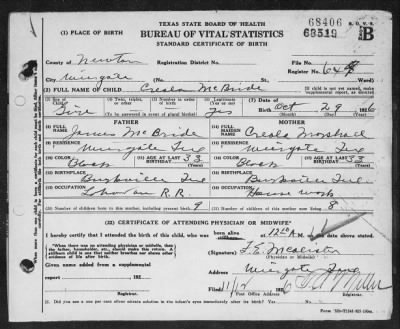 TEXAS STATE BOARD OF HEALTH
68406
(1) PLACE OF BIRTH
BUREAU OF VITAL STATISTICS
B
STANDARD CERTIFICATE OF BIRTH
County of Newton
Registration District No.
File No.
City
Wiergate
(No. St.
Register No. 64
Ward)
(2) FULL NAME OF CHILD Creola McBride
(If child is not yet named, make supplemental report, as directed)
(3) Sex
Girl
(4) Twin, triplet, or other?
(5) Number in order of birth
(To be answered in event of plural births)
(6) Legitimate?
Yes
(7) Date of Birth Oct 29 1926
FATHER
MOTHER
(8) FULL NAME James McBride
(14) FULL MAIDEN NAME Creola Marshall
(9) RESIDENCE Wiergate Tex
(15) RESIDENCE Wiergate Tex
(10) COLOR Black
(11) AGE AT LAST BIRTHDAY 33 (Years)
(16) COLOR Black
(17) AGE AT LAST BIRTHDAY 33 (Years)
(12) BIRTHPLACE Burkeville Tex
(18) BIRTHPLACE Burkeville Tex
(13) OCCUPATION Laborer R.R.
(19) OCCUPATION House work
(20) Number of children born to this mother, including present birth 9
(21) Number of children of this mother now living 8
(22) CERTIFICATE OF ATTENDING PHYSICIAN OR MIDWIFE*
I hereby certify that I attended the birth of this child, who was born alive at 12 A M. on the date above stated.
*When there was no attending physician or midwife, then the father, householder, etc., should make this return. A stillborn child is one that neither breathes nor shows other evidence of life after birth.
(Signature) T. E. McAlister
(Physician or Midwife)
Given name added from a supplemental
Address Wiergate Tex
report 192
Filed 11/12 1926
Post Office Address
Registrar